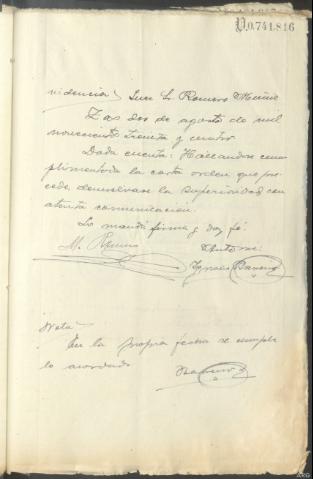 P.0.741.816
videncia Juez Sr. Romero
Las dos de agosto de mil
novecientos treinta y cuatro
Dada cuenta: Hallandose cum
plimentada la carta orden que pre
cede devuelvase a la Superioridad con
atenta comunicación.
Lo mandó firma y doy fé.
M. Romero Ante mi:
Ignacio
Nota
En la propia fecha se cumple
lo acordado